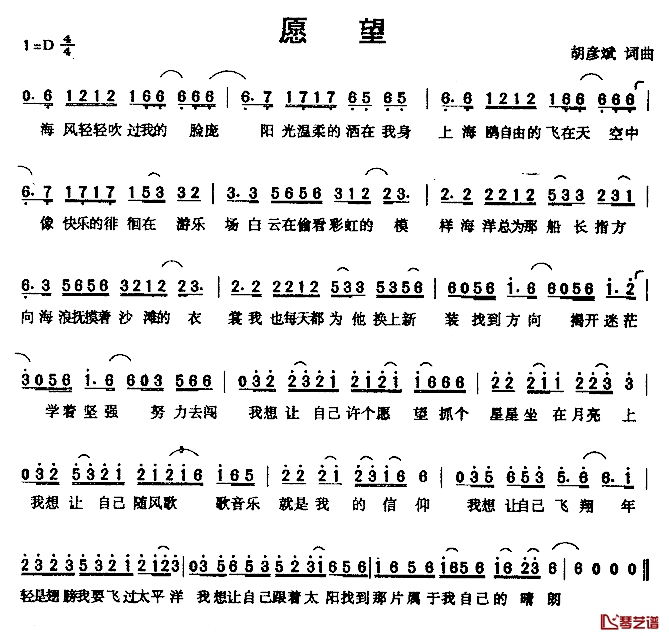 愿 望
1=D 4/4
胡彦斌 词曲
0· 6 1212 166 666 | 6· 7 1717 165 65 | 6· 6 1212 166 666
海 风轻轻吹 过我的 脸庞 阳 光温柔的 洒在 我身 上海 鸥自由的 飞在天 空中
6· 7 1717 153 32 | 3· 3 5656 312 23· | 2· 2 2212 533 231
像 快乐的徘 徊在 游乐 场白 云在偷看 彩虹的 模 样海 洋总为那 船 长 指方
6· 3 5656 3212 23· | 2· 2 2212 533 5356 | 1· 6 6056 6056 1· 2
向海 浪抚摸着 沙 滩的 衣 裳我 也每天都 为 他 换上新 装 找到方向 揭开 迷茫
3056 1· 6 603 566 | 032 2321 2121 1666 | 22 211 223 3
学着 坚强 努 力去闯 我想 让 自己 许个愿 望 抓个 星星 坐 在 月亮 上
032 5321 21216 165 | 22 21 2316 6 | 056 5653 5· 6 6· 1
我想 让 自己 随风歌 歌音乐 就是 我 的 信 仰 我想 让自己 飞 翔 年
2323 5321 2123 | 035 5653 5231 1656 | 1656 1656 1 6 | 6 0 0 0 ‖
轻是翅 膀我要飞 过太平 洋 我 想 让自己 跟着 太 阳找到 那 片 属于 我自己 的 晴 朗
琴艺谱